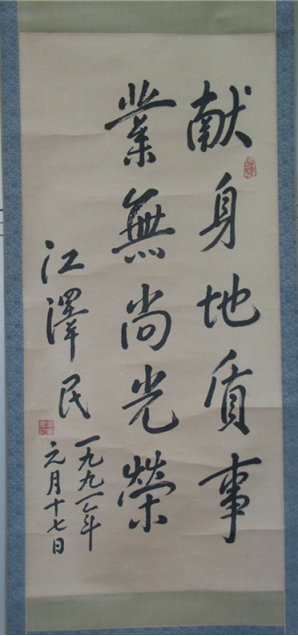 献身地质事
業無尚光榮
江澤民
一九九一年
元月十七日